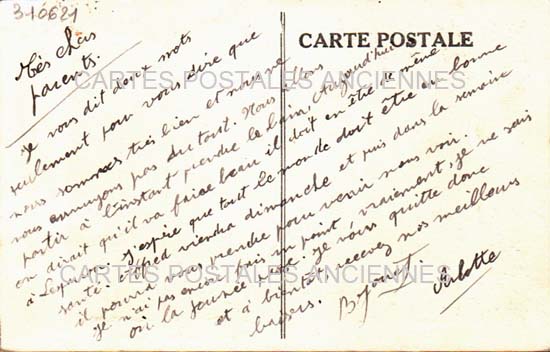 3-10621
CARTE POSTALE
CARTES POSTALES ANCIENNES
Très chers
parents.
Je vous dit deux mots
seulement pour vous dire que
nous sommes très bien et nous ne
nous ennuyons pas du tout. Nous allons
partir à l'instant prendre le bain. Aujourd'hui
on dirait qu'il va faire beau il doit en être de même
à J'espère que tout le monde doit être en bonne
santé. Alfred viendra dimanche et puis dans la semaine
il pourra vous prendre pour venir nous voir.
Je n'ai pas encore fais un point, vraiement, je ne sais
où la journée passe. Je vous quitte donc
et à bientôt recevez nos meilleurs
baisers.
CARTES POSTALES ANCIENNES